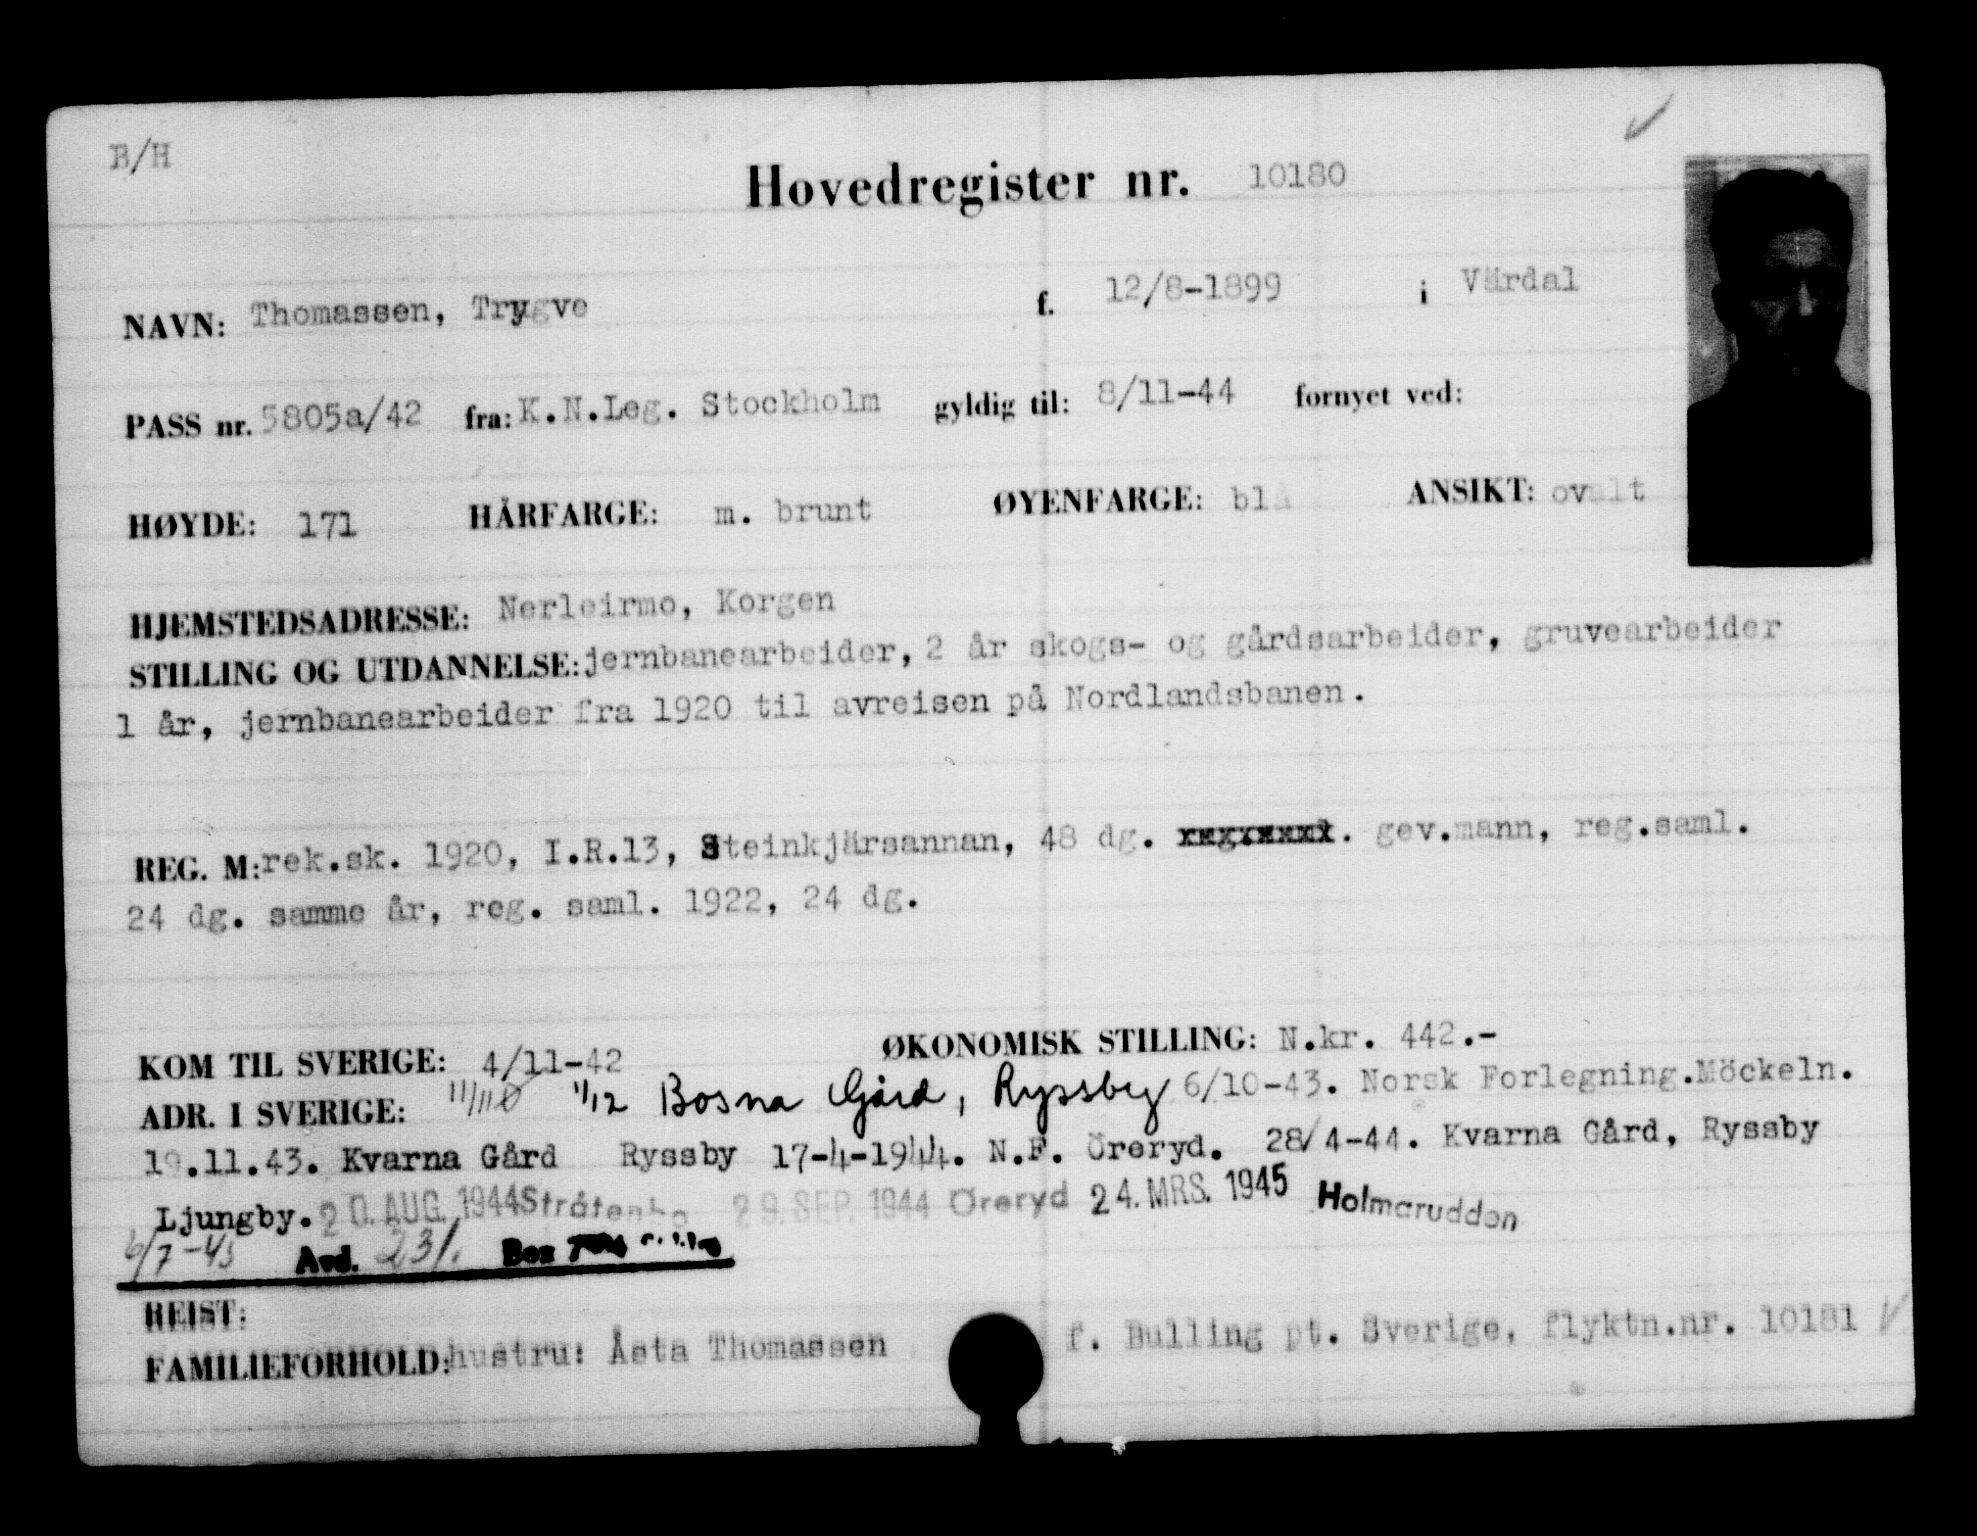 B/H
Hovedregister nr. 10180
NAVN: Thomassen, Trygve f. 12/8-1899 i Värdal
PASS nr. 5805a/42 fra: K.N.Leg. Stockholm gyldig til: 8/11-44 fornyet ved:
HØYDE: 171 HÅRFARGE: m. brunt ØYENFARGE: blå ANSIKT: ovalt
HJEMSTEDSADRESSE: Nerleirmo, Korgen
STILLING OG UTDANNELSE: jernbanearbeider, 2 år skogs- og gårdsarbeider, gruvearbeider
1 år, jernbanearbeider fra 1920 til avreisen på Nordlandsbanen.
REG. M: rek.sk. 1920, I.R.13, Steinkjärsannan, 48 dg. gev.mann, reg.saml.
24 dg. samme år, reg. saml. 1922, 24 dg.
KOM TIL SVERIGE: 4/11-42 ØKONOMISK STILLING: N.kr. 442.-
ADR. I SVERIGE: 1/12 Bosna Gård, Ryssby 6/10-43. Norsk Forlegning.Möckeln.
19.11.43. Kvarna Gård Ryssby 17-4-1944. N.F. Öreryd. 28/4-44. Kvarna Gård, Ryssby
Ljungby. 20. AUG. 1944 Stråtenbo 29. SEP. 1944 Öreryd 24. MRS. 1945 Holmarudden
6/7-45 Avd. 231.
REIST:
FAMILIEFORHOLD: hustru: Åsta Thomassen f. Bulling pt. Sverige, flyktn.nr. 10181